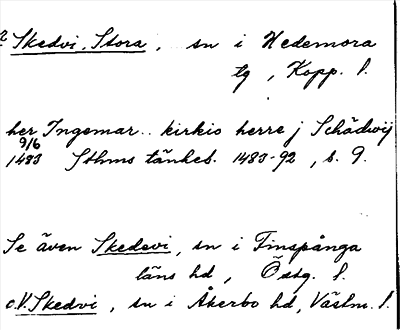 ? Skedvi, Stora, sn i Hedemora
tg, Kopp. l.
her Ingemar.. kirkio herre j Schädwij
9/6
1483 Sthms tänkeb. 1483-92, s. 9.
Se även Skedevi, sn i Finspånga
läns hd, Östg. l.
o. V. Skedvi, sn i Åkerbo hd, Västm. l.